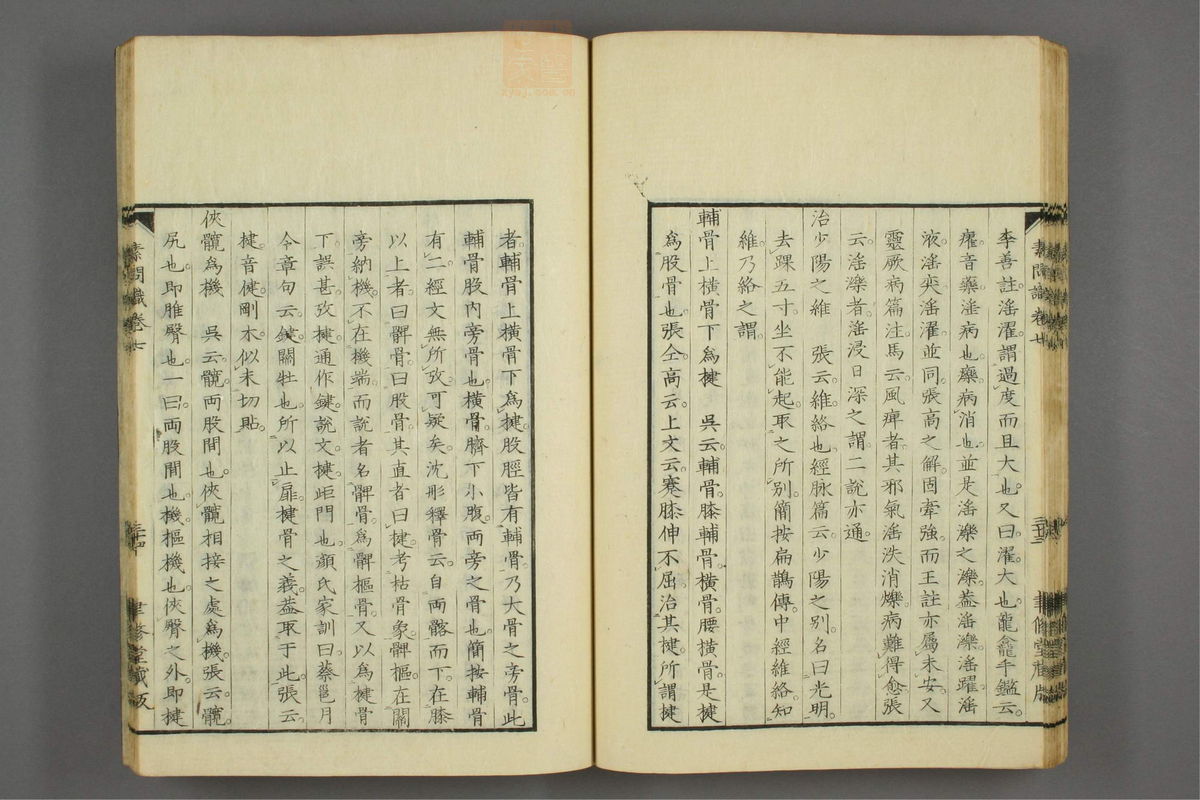 李善註滛濯謂過度而且大也又曰濯大也龍龕手鑑云
㿑音藥滛病也㿑病消也並是滛濼之濼蓋滛濼滛躍滛
液滛奕滛濯並同張高之解固牽強而王註亦屬未安又
靈厥病篇注馬云風痺者其邪氣滛泆消爍病難得愈張
云滛濼者滛浸日深之謂二說亦通
治少陽之維 張云維絡也經脉篇云少陽之別名曰光明
去踝五寸坐不能起取之所別簡按扁鵲傳中經維絡知
維乃絡之謂
輔骨上橫骨下爲楗 吳云輔骨膝輔骨橫骨腰橫骨是楗
爲股骨也張仝高云上文云蹇膝伸不屈治其楗所謂楗
者輔骨上橫骨下爲楗股脛皆有輔骨乃大骨之旁骨此
輔骨股內旁骨也橫骨臍下小腹両旁之骨也簡按輔骨
有二經文無所攷可疑矣沈彤釋骨云自両髂而下在膝
以上者曰髀骨曰股骨其直者曰楗考枯骨象髀樞在關
旁納機不在機端而說者名髀骨爲髀樞骨又以爲楗骨
下誤甚攷楗通作鍵說文楗歫門也顏氏家訓曰蔡邕月
令章句云鍵關牡也所以止扉楗骨之義葢取于此張云
楗音健剛木似未切貼
俠髖爲機 吳云髖両股間也俠髖相接之處爲機張云髖
尻也即脽臀也一曰両股間也機樞機也俠臀之外即楗
素問識卷七
聿修堂藏版